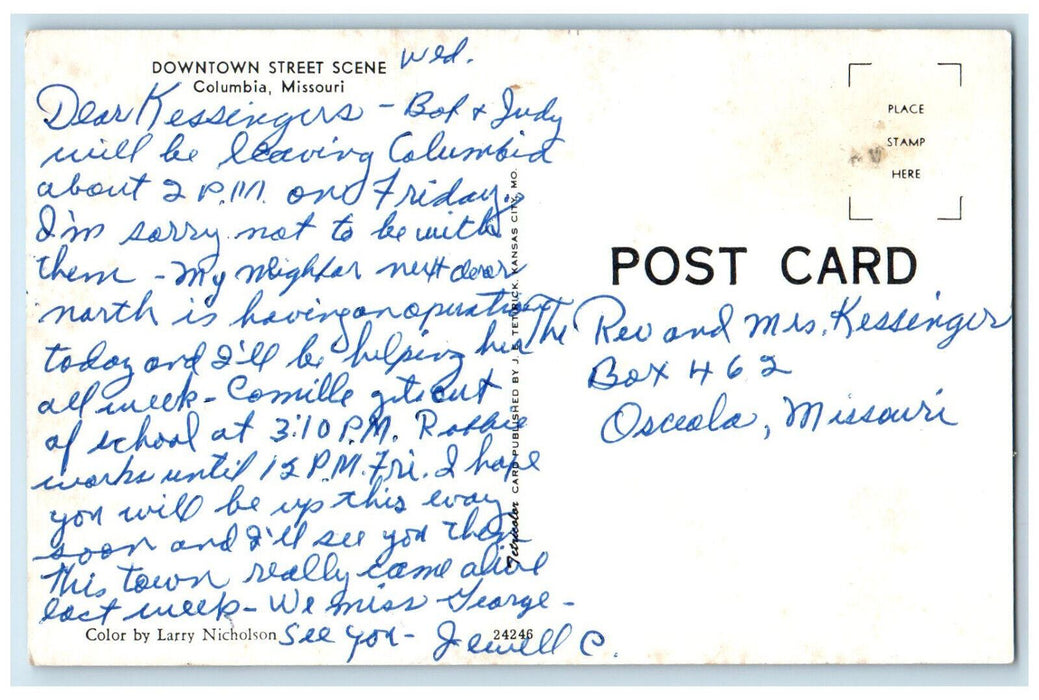 DOWNTOWN STREET SCENE
Columbia, Missouri
Wed.
Dear Kessingers - Bob & Judy
will be leaving Columbia
about 2 P.M. on Friday.
I'm sorry not to be with
them - My neighbor next door
north is having an operation
today and I'll be helping her
all week - Camille gets out
of school at 3:10 P.M. Robbie
works until 12 P.M. Fri. I hope
you will be up this way
soon and I'll see you then
This town really came alive
last week - We miss George -
See you - Jewell C.
Color by Larry Nicholson
24246
Tetricolor CARD PUBLISHED BY J. E. TETIRICK, KANSAS CITY, MO.
PLACE
STAMP
HERE
POST CARD
The Rev and Mrs. Kessinger
Box 462
Osceola, Missouri